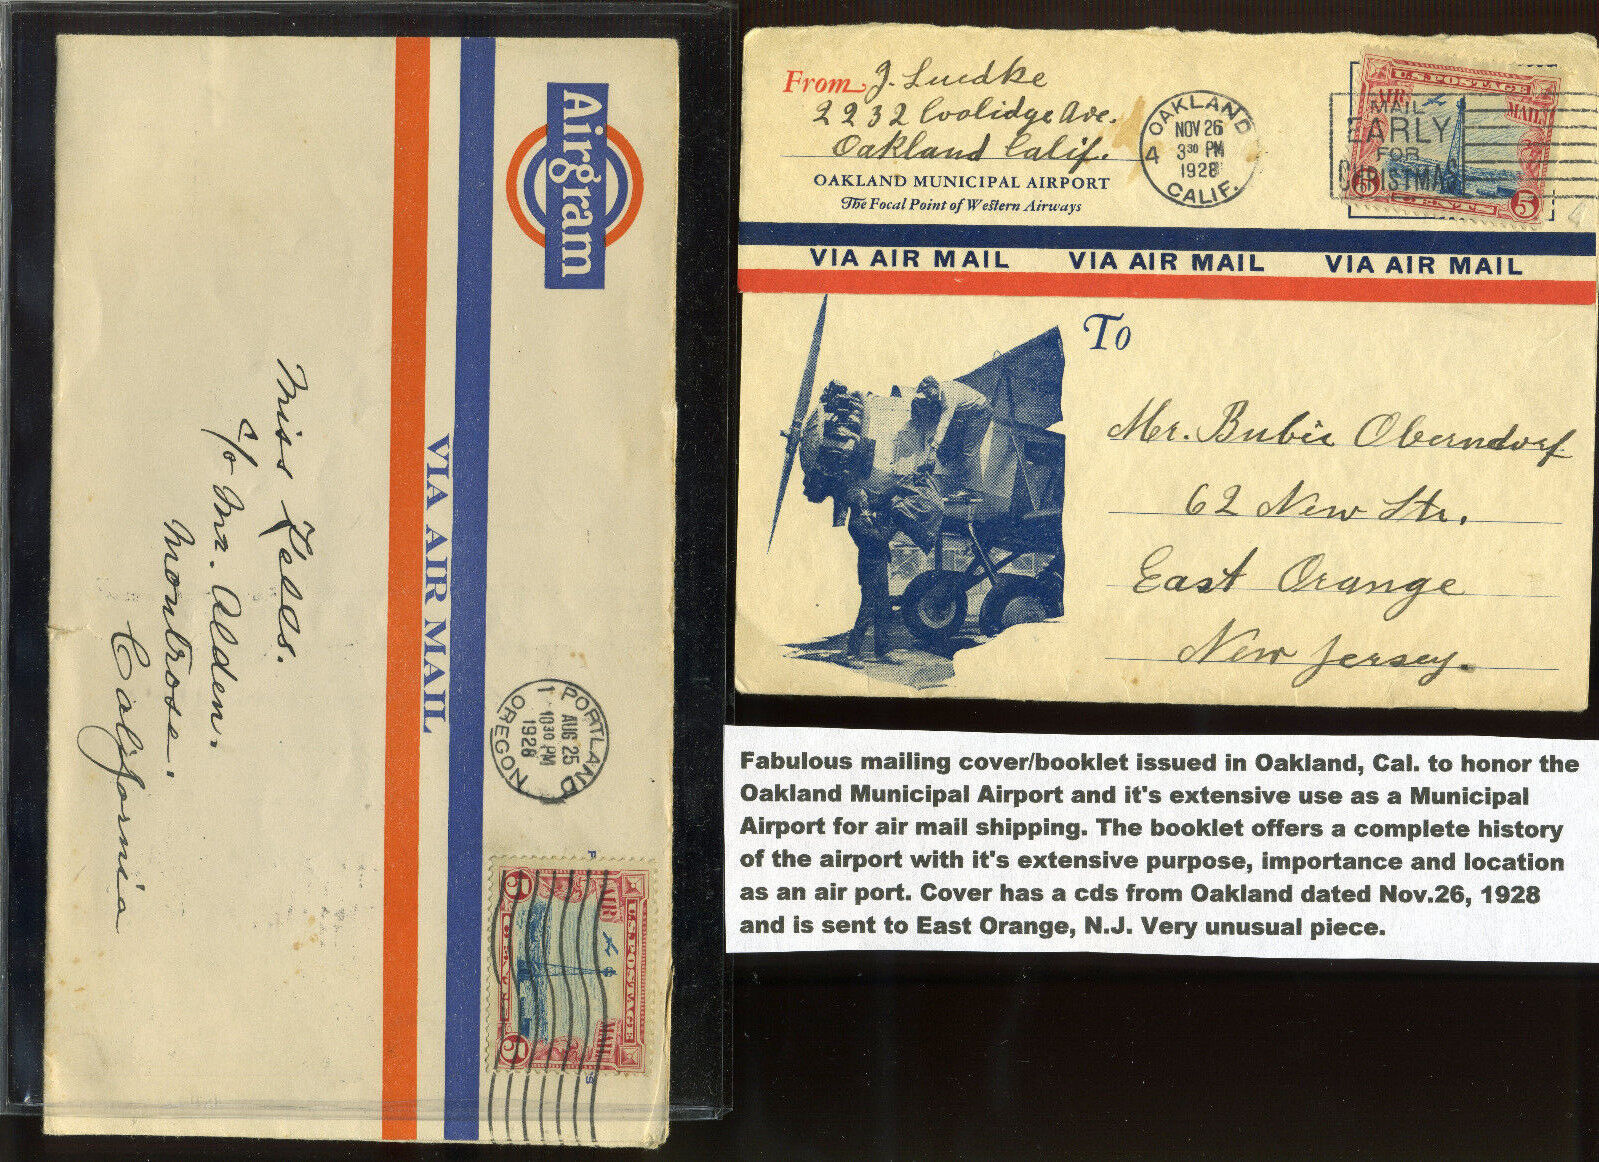 Airgram
VIA AIR MAIL
PORTLAND
1
AUG 25
10 30 PM
1928
OREGON
U.S. POSTAGE
AIR MAIL
5 CENTS 5
Miss Feles.
c/o Mr. Alden.
Montrose.
California
From J. Luedke
2232 Coolidge Ave.
Oakland Calif.
OAKLAND MUNICIPAL AIRPORT
The Focal Point of Western Airways
OAKLAND
NOV 26
4 3 30 PM
1928
CALIF.
MAIL
EARLY
FOR
CHRISTMAS
U.S. POSTAGE
AIR MAIL
5 CENTS 5
VIA AIR MAIL VIA AIR MAIL VIA AIR MAIL
To
Mr. Bubie Oberndorf
62 New Str.
East Orange
New Jersey.
Fabulous mailing cover/booklet issued in Oakland, Cal. to honor the
Oakland Municipal Airport and it's extensive use as a Municipal
Airport for air mail shipping. The booklet offers a complete history
of the airport with it's extensive purpose, importance and location
as an air port. Cover has a cds from Oakland dated Nov.26, 1928
and is sent to East Orange, N.J. Very unusual piece.